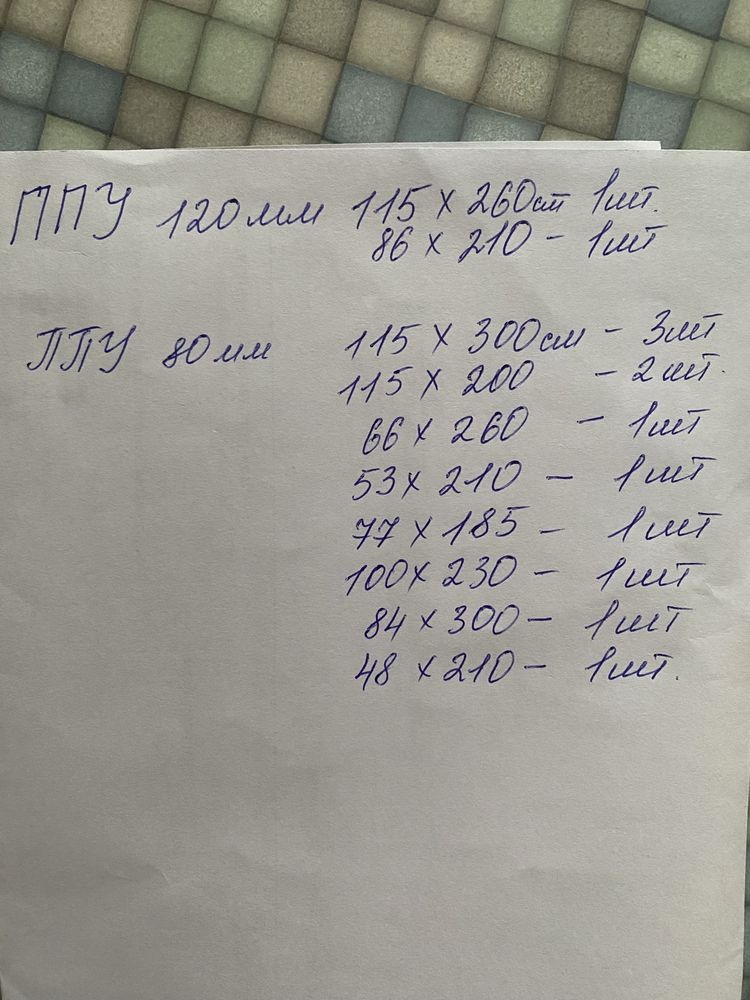 ППУ 120мм 115 х 260см 1шт.
86 х 210 - 1шт
ППУ 80мм 115 х 300см - 3шт
115 х 200 - 2шт.
66 х 260 - 1шт
53 х 210 - 1шт
77 х 185 - 1шт
100 х 230 - 1шт
84 х 300 - 1шт
48 х 210 - 1шт.